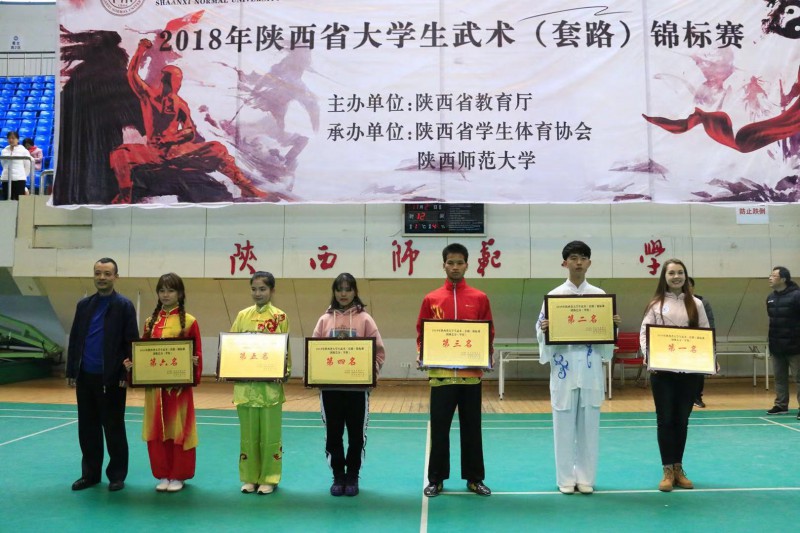 SHAANXI NORMAL UNIVERSITY
2018年陕西省大学生武术（套路）锦标赛
主办单位:陕西省教育厅
承办单位:陕西省学生体育协会
陕西师范大学
禁止跌倒
12
陝西师範
學
第六名
第五名
第四名
第三名
第二名
第一名